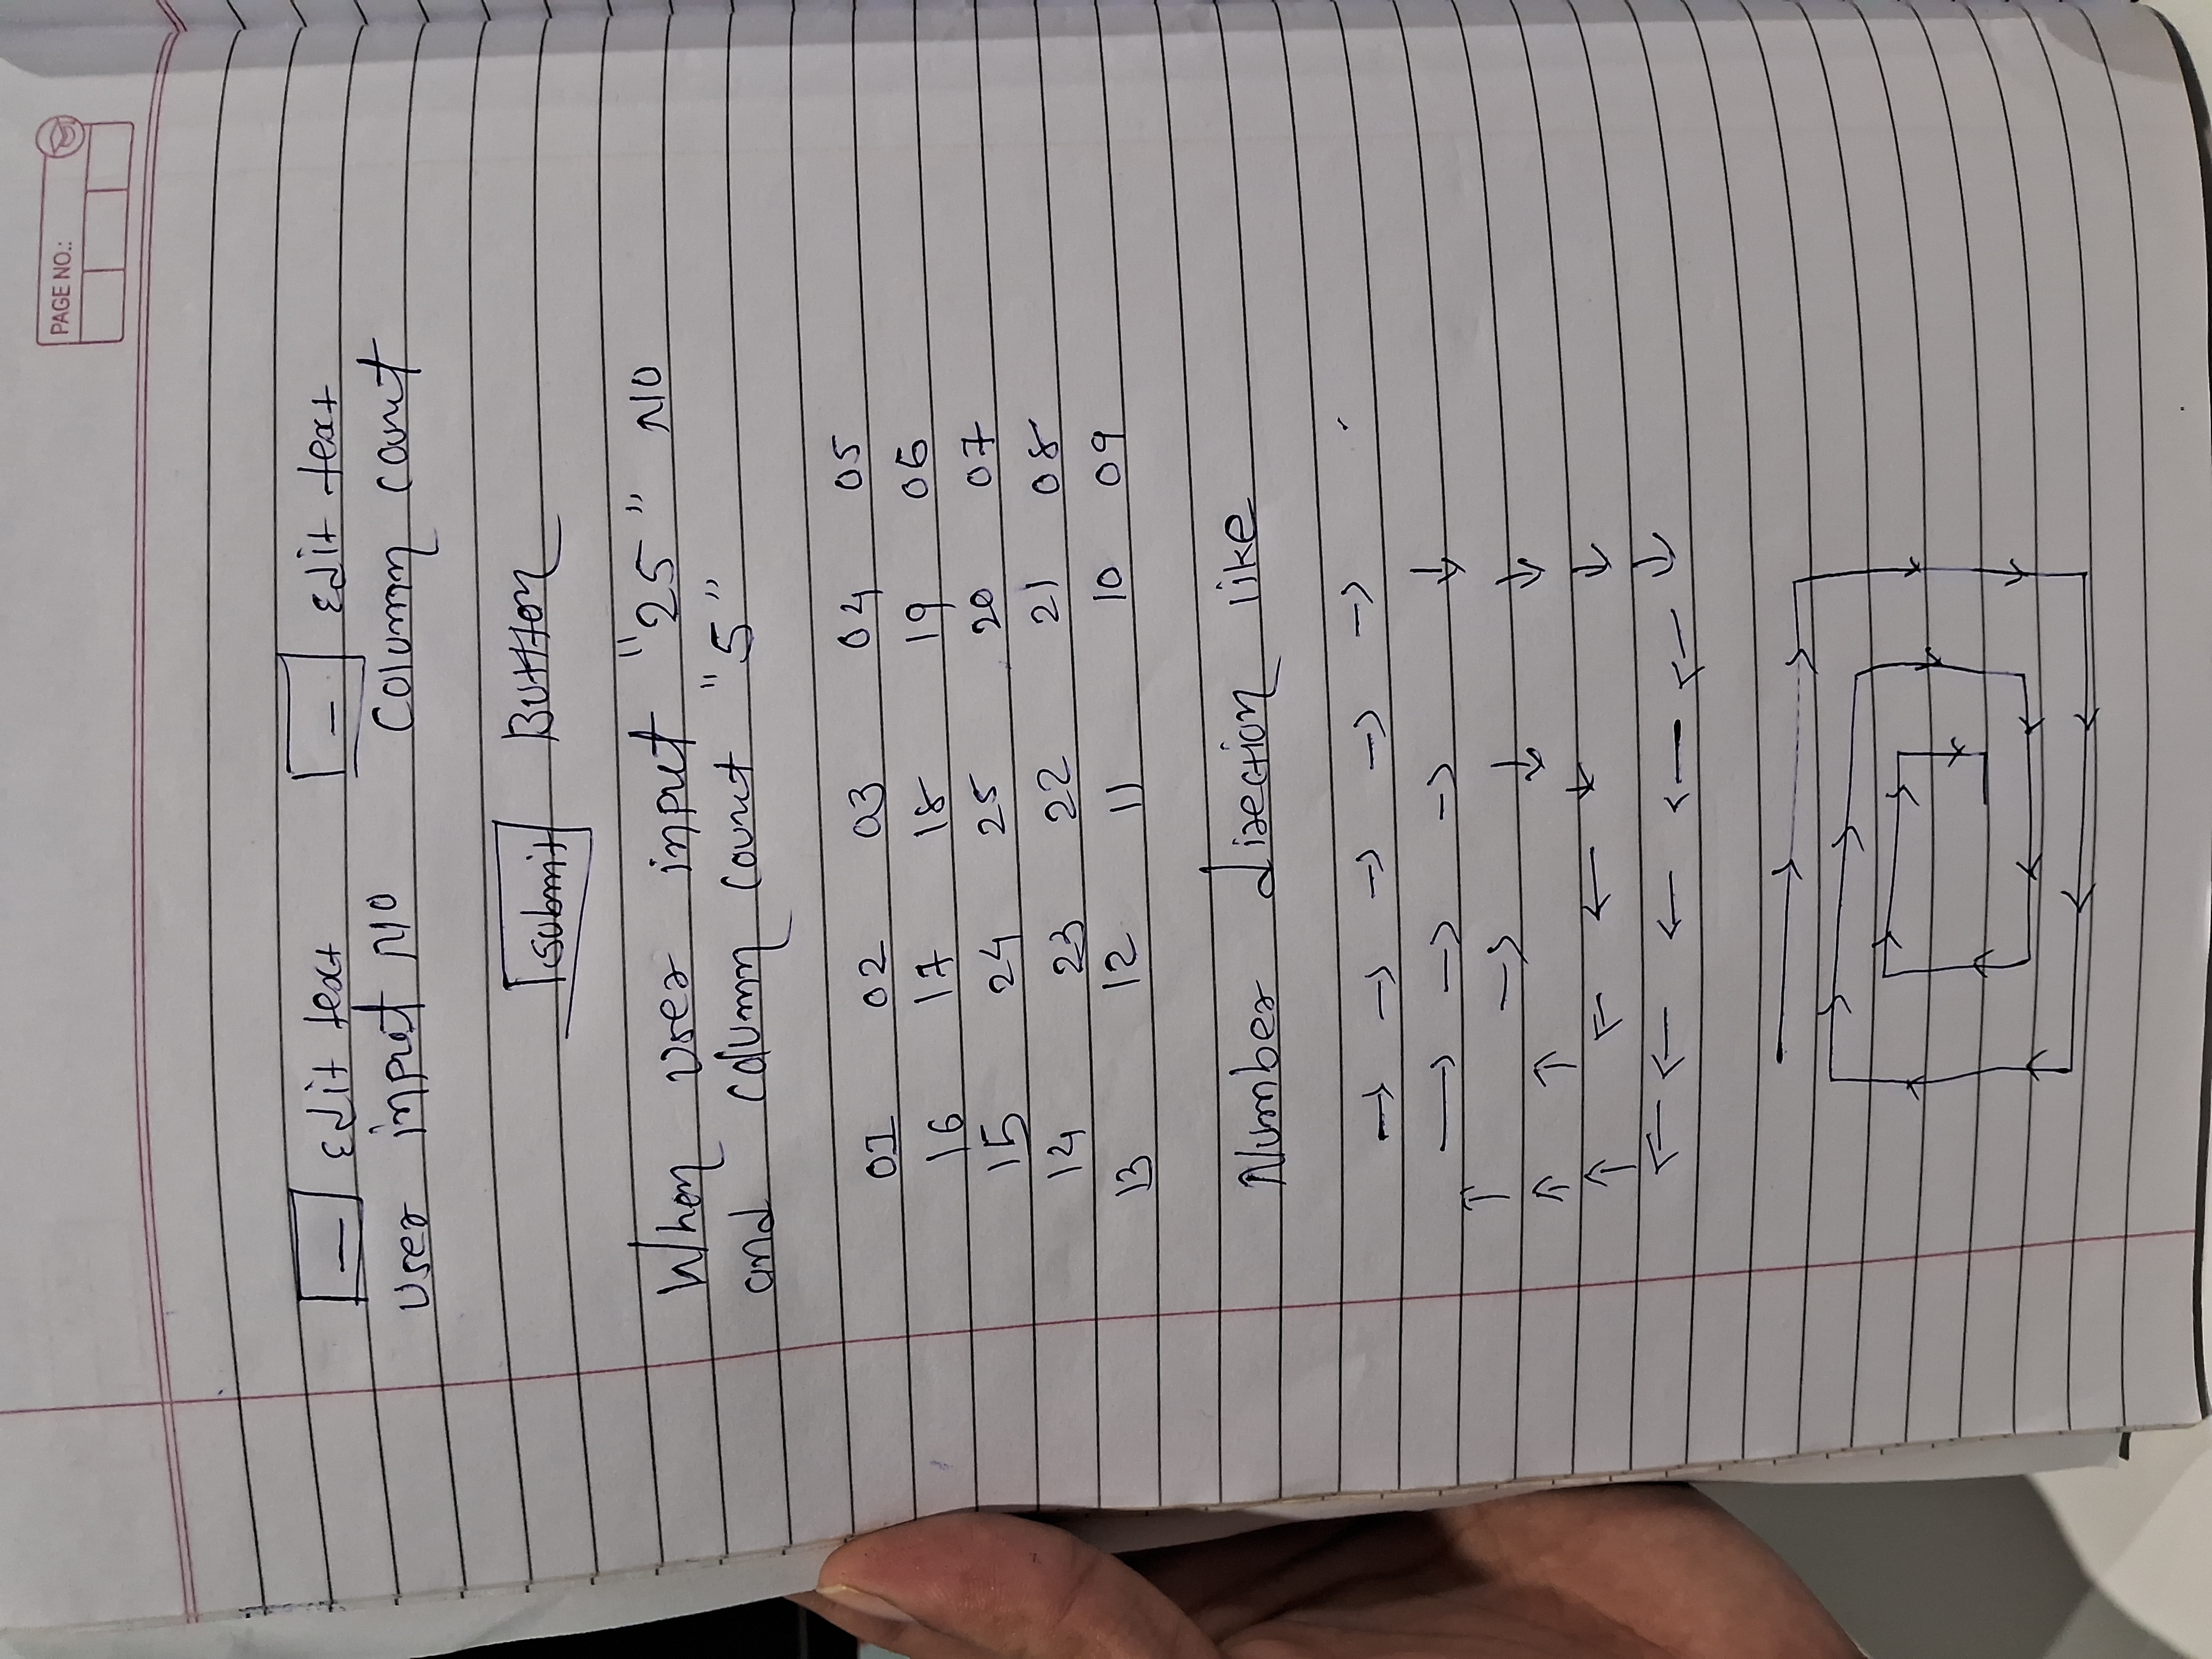 PAGE NO.:
Edit text Edit text
user input NO Column count
Submit Button
When user input "25" NO
and column count "5"
01 02 03 04 05
16 17 18 19 06
15 24 25 20 07
14 23 22 21 08
13 12 11 10 09
Number direction like
→ → → → →
→ → → ↓
↑ → ↓ ↓
↑ ↑ ← ← ↓ ↓
↑ ← ← ← ← ↓